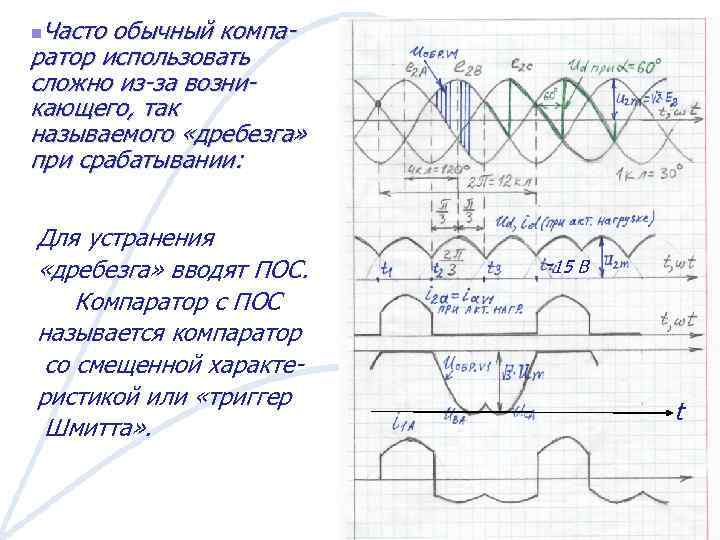 Часто обычный компа-
ратор использовать
сложно из-за возни-
кающего, так
называемого «дребезга»
при срабатывании:
Для устранения
«дребезга» вводят ПОС.
Компаратор с ПОС
называется компаратор
со смещенной характе-
ристикой или «триггер
Шмитта».
Uобр.v1
e2A e2B e2c Ud при α=60°
60° U2m=√3·E2
t, ωt
4кл=120° 1кл=30°
2π=12кл
π/3 π/3 Ud, id (при акт. нагрузке)
t1 t2 2π/3 t3 -15 В U2m t, ωt
i2a=iav1
ПРИ АКТ. НАГР.
t, ωt
Uобр.v1 √3·Um
UBA UCA t
i1A